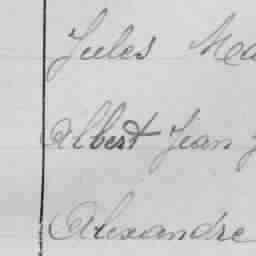 Jules
Albert Jean
Alexandre